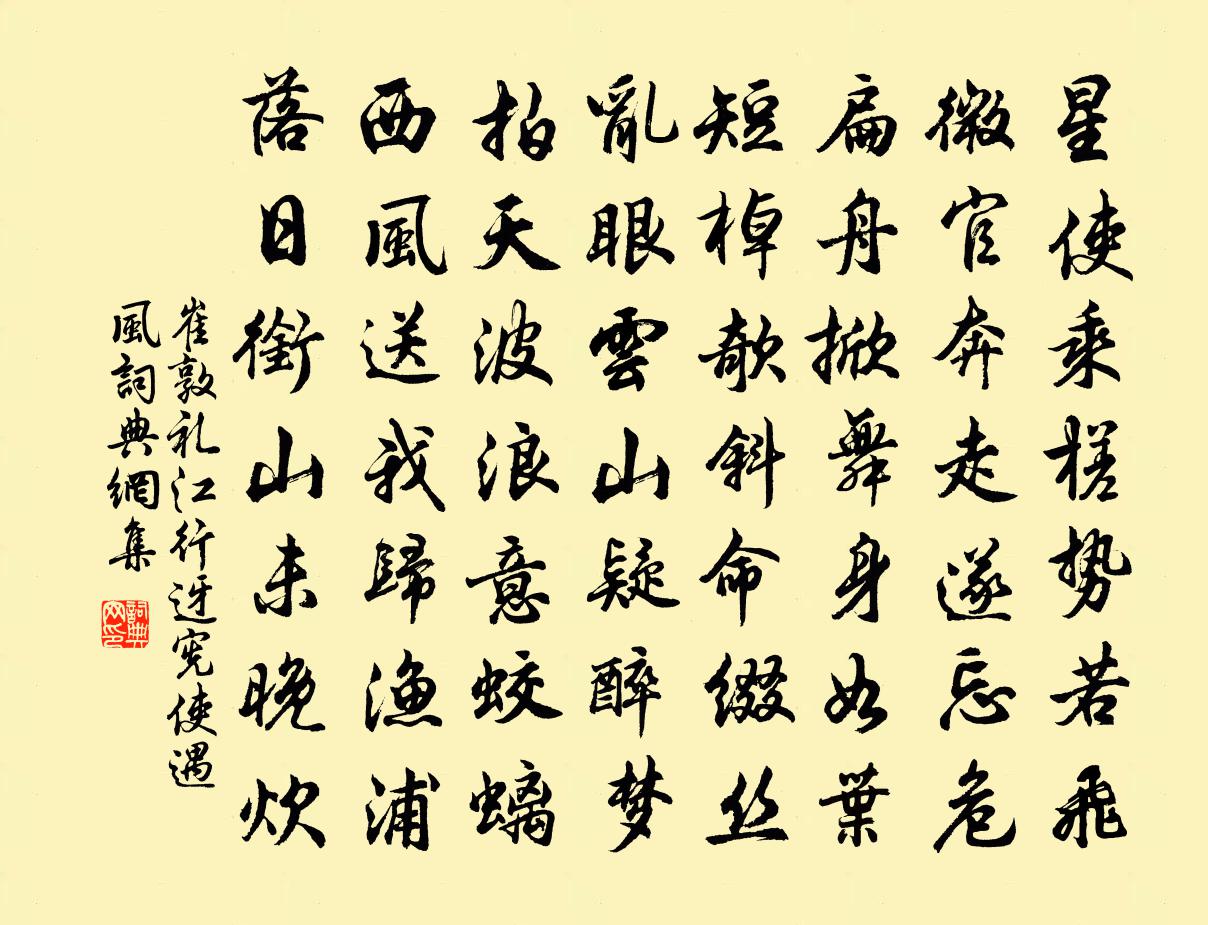 星使乘槎勢若飛
微官奔走遂忘危
扁舟掀舞身如葉
短棹欹斜命綴丝
亂眼雲山疑醉梦
拍天波浪意蛟螭
西風送我歸漁浦
落日銜山未晚炊
崔敦礼江行迓宪使遇
風詞典網集
詞典网印